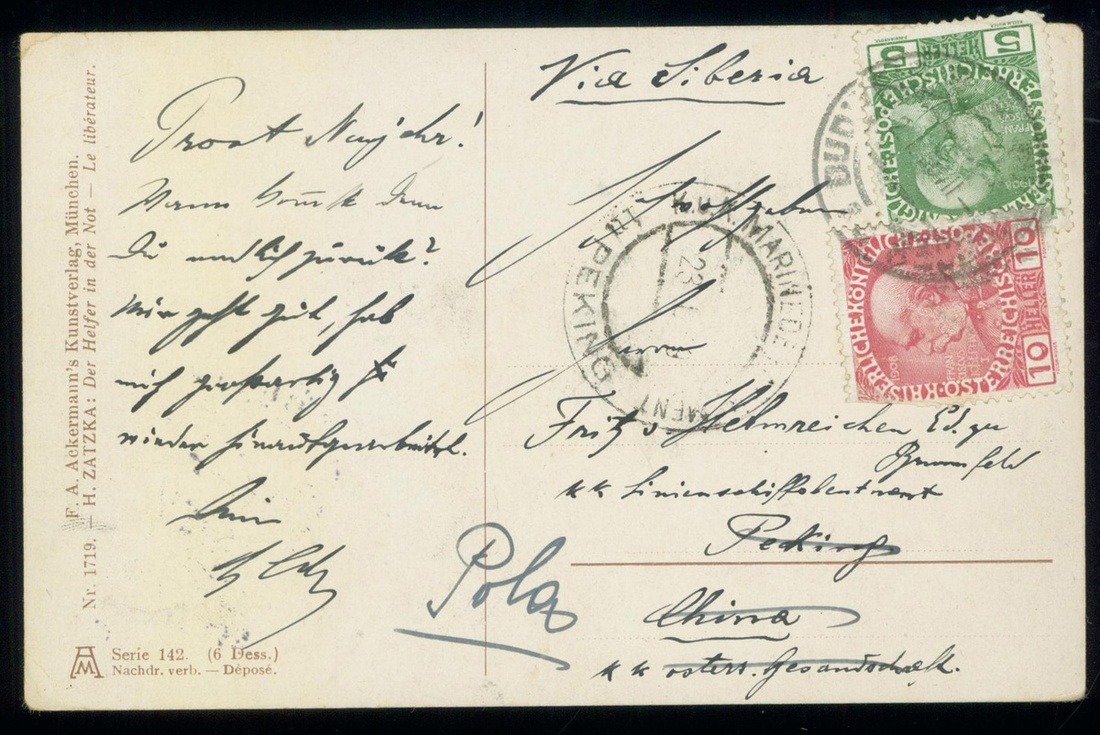 Nr. 1719. — F. A. Ackermann's Kunstverlag, München.
H. ZATZKA: Der Helfer in der Not — Le libérateur.
Prosit Neujahr!
Wann kommst denn
Du endlich zurück?
Mir geht gut, hab
mich großartig
wieder hinaufgearbeitet.
Dein
Serie 142. (6 Dess.)
Nachdr. verb. — Déposé.
Via Siberia
Herrn
Fritz v. Helmreichen Ed. zu
Brunnfeld
K K Linienschiffsleutenant
Peking
China
K K österr. Gesandschaft.
Pola
5 HELLER 5
1908
10 HELLER 10
KAISERLICHE KÖNIGLICHE ÖSTERREICHISCHE
1908
K.U.K. MARINEDETACHEMENT
IN PEKING
23